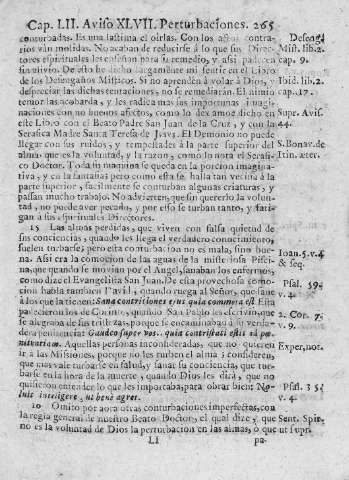 Cap. LII. Aviso XLVII. Perturbaciones. 265
conturbadas. Es una lastima el oirlas. Con los años contra-
rios van molidas. No acaban de reducirse à lo que sus Direc-
tores espirituales les enseñan para su remedio, y assi padecen
sin alivio. De esto he dicho largamente mi sentir en el Libro
de los Desengaños Misticos. Si no aprenden à volar à Dios, y
despreciar las dichas tentaciones, no se remediaràn. El nimio
temor las acobarda, y les radica mas las importunas imagi-
naciones con no buenos afectos, como lo dexamos dicho en
este Libro con el Beato Padre San Juan de la Cruz, y con la
Serafica Madre Santa Teresa de Jesus. El Demonio no puede
llegar con sus ruidos, y tempestades à la parte superior del
alma, que es la voluntad, y la razon, como lo nota el Serafi-
co Doctor. Toda su maquina se queda en la porcion imagina-
tiva, y en la fantasia; pero como esta se halla tan vecina à la
parte superior, facilmente se conturban algunas criaturas, y
passan mucho trabajo. No advierten, que sin quererlo la volun-
tad, no puede aver pecado, y por esso se turban tanto, y fati-
gan à sus espirituales Directores.
15 Las almas perdidas, que viven con falsa quietud de
sus conciencias, quando les llega el verdadero conocimiento,
suelen turbarse; pero esta conturbacion no es mala, sino bue-
na. Assi era la comocion de las aguas de la misteriosa Pisci-
na, que quando le movian por el Angel, sanaban los enfermos,
como dize el Evangelista San Juan. De esta provechosa como-
cion habla tambien David, quando ruega al Señor, que sane
à los que la tienen: Sana contritiones ejus quia commota est. Esta
padecieron los de Corinto, quando San Pablo les escrivio, que
se alegraba de sus tristezas, porque se encaminaban à la verda-
dera penitencia: Gaudeo super vos, quia contristati estis ad pœ-
nitentiam. Aquellas personas inconsideradas, que no quieren
ir à las Missiones, porque no les turben el alma, consideren,
que mas vale turbarse en salud, y sanar su conciencia, que tur-
barse en la hora de la muerte, quando Dios les dirà, que no
quisieron entender lo que les importaba, para obrar bien: No-
luit intelligere, ut benè ageret.
16 Omito por aora otras conturbaciones imperfectas, con
la regla general de nuestro Beato Doctor, el qual dize, que
no es la voluntad de Dios la perturbacion en las almas, ò que
Ll
pa-
Deseng.
Mist. lib. 2.
cap. 9.
Ibid. lib. 2.
cap. 17.
Supr. Avis.
44.
S. Bonav. de
Itin. æter.
Ioan. 5. v. 4
& seq.
Psal. 59.
v. 4.
2. Cor. 7.
v. 9.
Exper, not.
Psal. 35.
v. 4.
Sent. Spir.
ut supr.